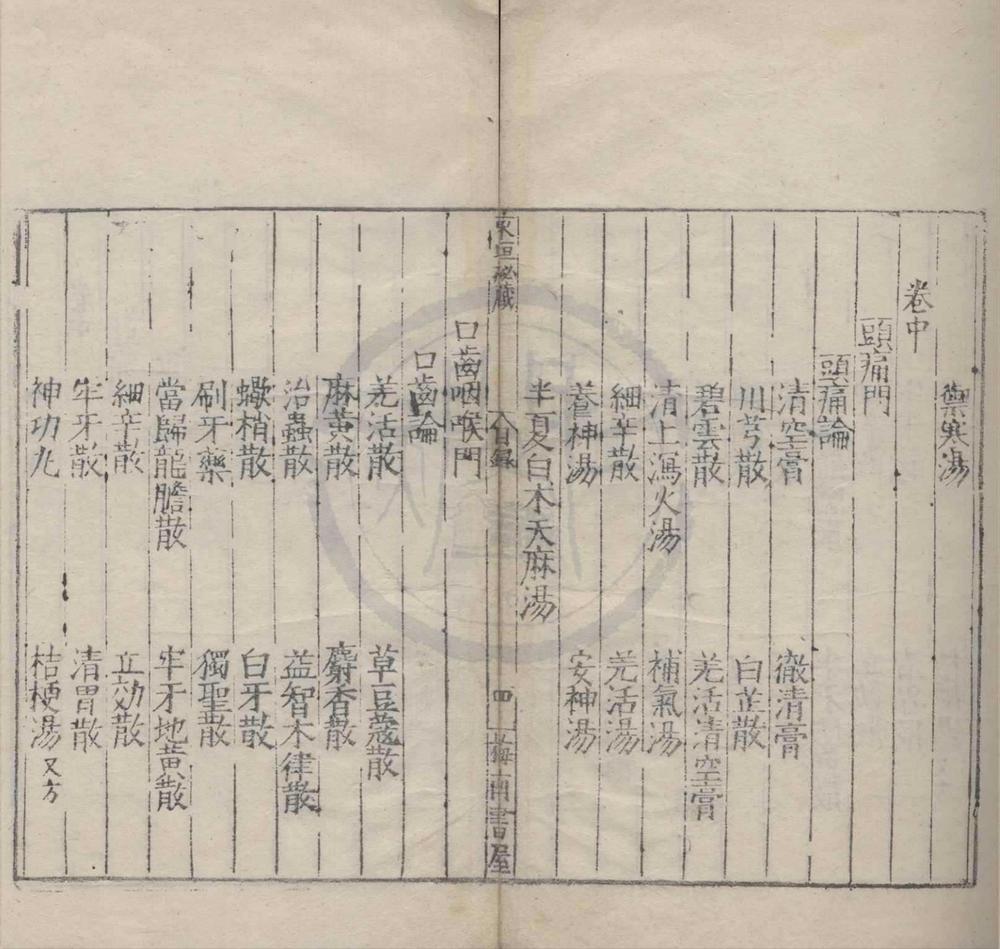 禦寒湯
卷中
頭痛門
頭痛論
清空膏　徹清膏
川芎散　白芷散
碧雲散　羌活清空膏
清上瀉火湯　補氣湯
細辛散　羌活湯
養神湯　安神湯
半夏白木天麻湯
東垣秘藏　目録　四　梅南書屋
口齒咽喉門
口齒論
羌活散　草豆蔻散
麻黃散　麝香散
治蟲散　益智木律散
蠍梢散　白牙散
刷牙藥　獨聖散
當歸龍膽散　牢牙地黃散
細辛散　立効散
牢牙散　清胃散
神功丸　桔梗湯又方